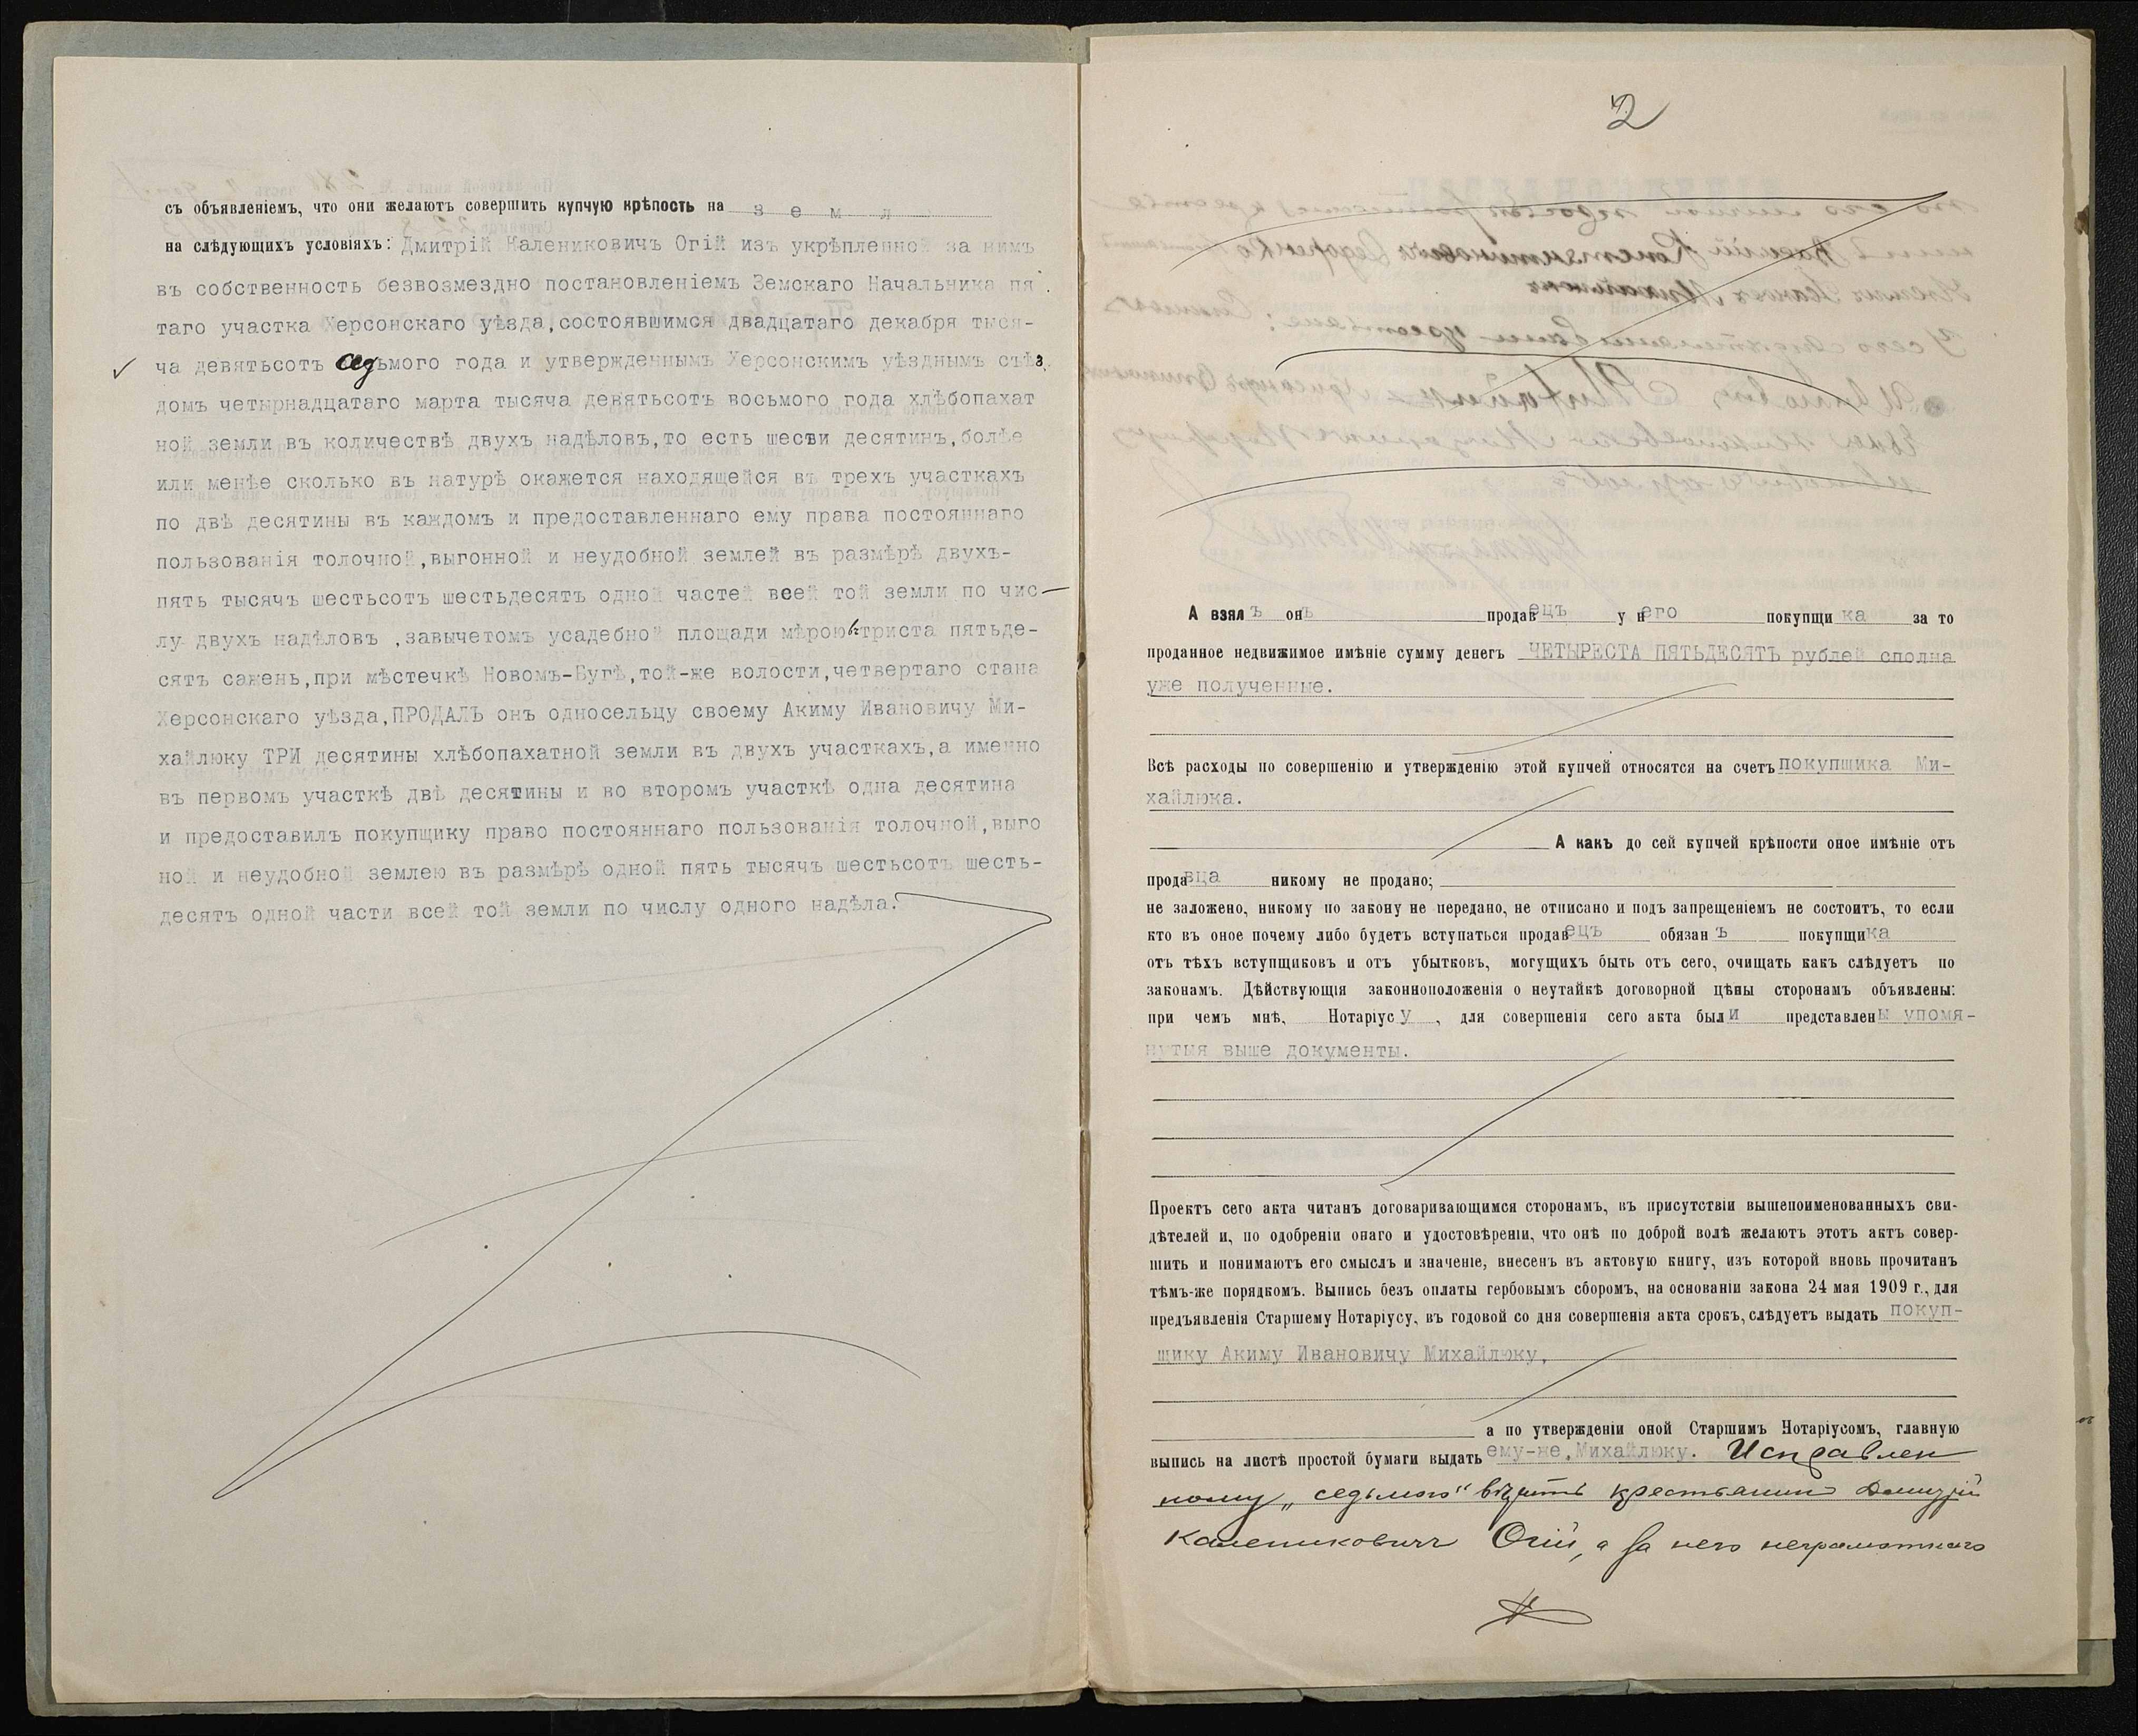 съ объявленіемъ, что они желаютъ совершить купчую крѣпость на з е м л
на слѣдующихъ условіяхъ: Дмитрій Калениковичъ Огій изъ укрѣпленной за нимъ
въ собственность безвозмездно постановленіемъ Земскаго Начальника пя
таго участка Херсонскаго уѣзда,состоявшимся двадцатаго декабря тыся-
ча девятьсотъ седьмого года и утвержденнымъ Херсонскимъ уѣзднымъ съѣз
домъ четырнадцатаго марта тысяча девятьсотъ восьмого года хлѣбопахат
ной земли въ количествѣ двухъ надѣловъ,то есть шести десятинъ,болѣе
или менѣе сколько въ натурѣ окажется находящейся въ трехъ участкахъ
по двѣ десятины въ каждомъ и предоставленнаго ему права постояннаго
пользованія толочной,выгонной и неудобной землей въ размѣрѣ двухъ-
пять тысячъ шестьсотъ шестьдесятъ одной частей всей той земли по чис-
лу двухъ надѣловъ ,завычетомъ усадебной площади мѣрою триста пятьде-
сятъ сажень,при мѣстечкѣ Новомъ-Бугѣ,той-же волости,четвертаго стана
Херсонскаго уѣзда,ПРОДАЛЪ онъ односельцу своему Акиму Ивановичу Ми-
хайлюку ТРИ десятины хлѣбопахатной земли въ двухъ участкахъ,а именно
въ первомъ участкѣ двѣ десятины и во второмъ участкѣ одна десятина
и предоставилъ покупщику право постояннаго пользованія толочной,выго
ной и неудобной землею въ размѣрѣ одной пять тысячъ шестьсотъ шесть-
десятъ одной части всей той земли по числу одного надѣла.
2
А взялъ онъ продавецъ у него покупщика за то
проданное недвижимое имѣніе сумму денегъ ЧЕТЫРЕСТА ПЯТЬДЕСЯТЪ рублей сполна
уже полученные.
Всѣ расходы по совершенію и утвержденію этой купчей относятся на счетъ покупщика Ми-
хайлюка.
А какъ до сей купчей крѣпости оное имѣніе отъ
продавца никому не продано;
не заложено, никому по закону не передано, не отписано и подъ запрещеніемъ не состоитъ, то если
кто въ оное почему либо будетъ вступаться продавецъ обязанъ покупщика
отъ тѣхъ вступщиковъ и отъ убытковъ, могущихъ быть отъ сего, очищать какъ слѣдуетъ по
законамъ. Дѣйствующія законноположенія о неутайкѣ договорной цѣны сторонамъ объявлены:
при чемъ мнѣ, Нотаріусу, для совершенія сего акта были представлены упомя-
нутыя выше документы.
Проектъ сего акта читанъ договаривающимся сторонамъ, въ присутствіи вышепоименованныхъ сви-
дѣтелей и, по одобреніи онаго и удостовѣреніи, что онѣ по доброй волѣ желаютъ этотъ актъ совер-
шить и понимаютъ его смыслъ и значеніе, внесенъ въ актовую книгу, изъ которой вновь прочитанъ
тѣмъ-же порядкомъ. Выпись безъ оплаты гербовымъ сборомъ, на основаніи закона 24 мая 1909 г., для
предъявленія Старшему Нотаріусу, въ годовой со дня совершенія акта срокъ, слѣдуетъ выдать покуп-
щику Акиму Ивановичу Михайлюку,
а по утвержденіи оной Старшимъ Нотаріусомъ, главную
выпись на листѣ простой бумаги выдать ему-же,Михайлюку. Исправлен
ному „седьмого" вѣрить крестьянинъ Дмитрій
Калениковичъ Огій, а за него неграмотнаго